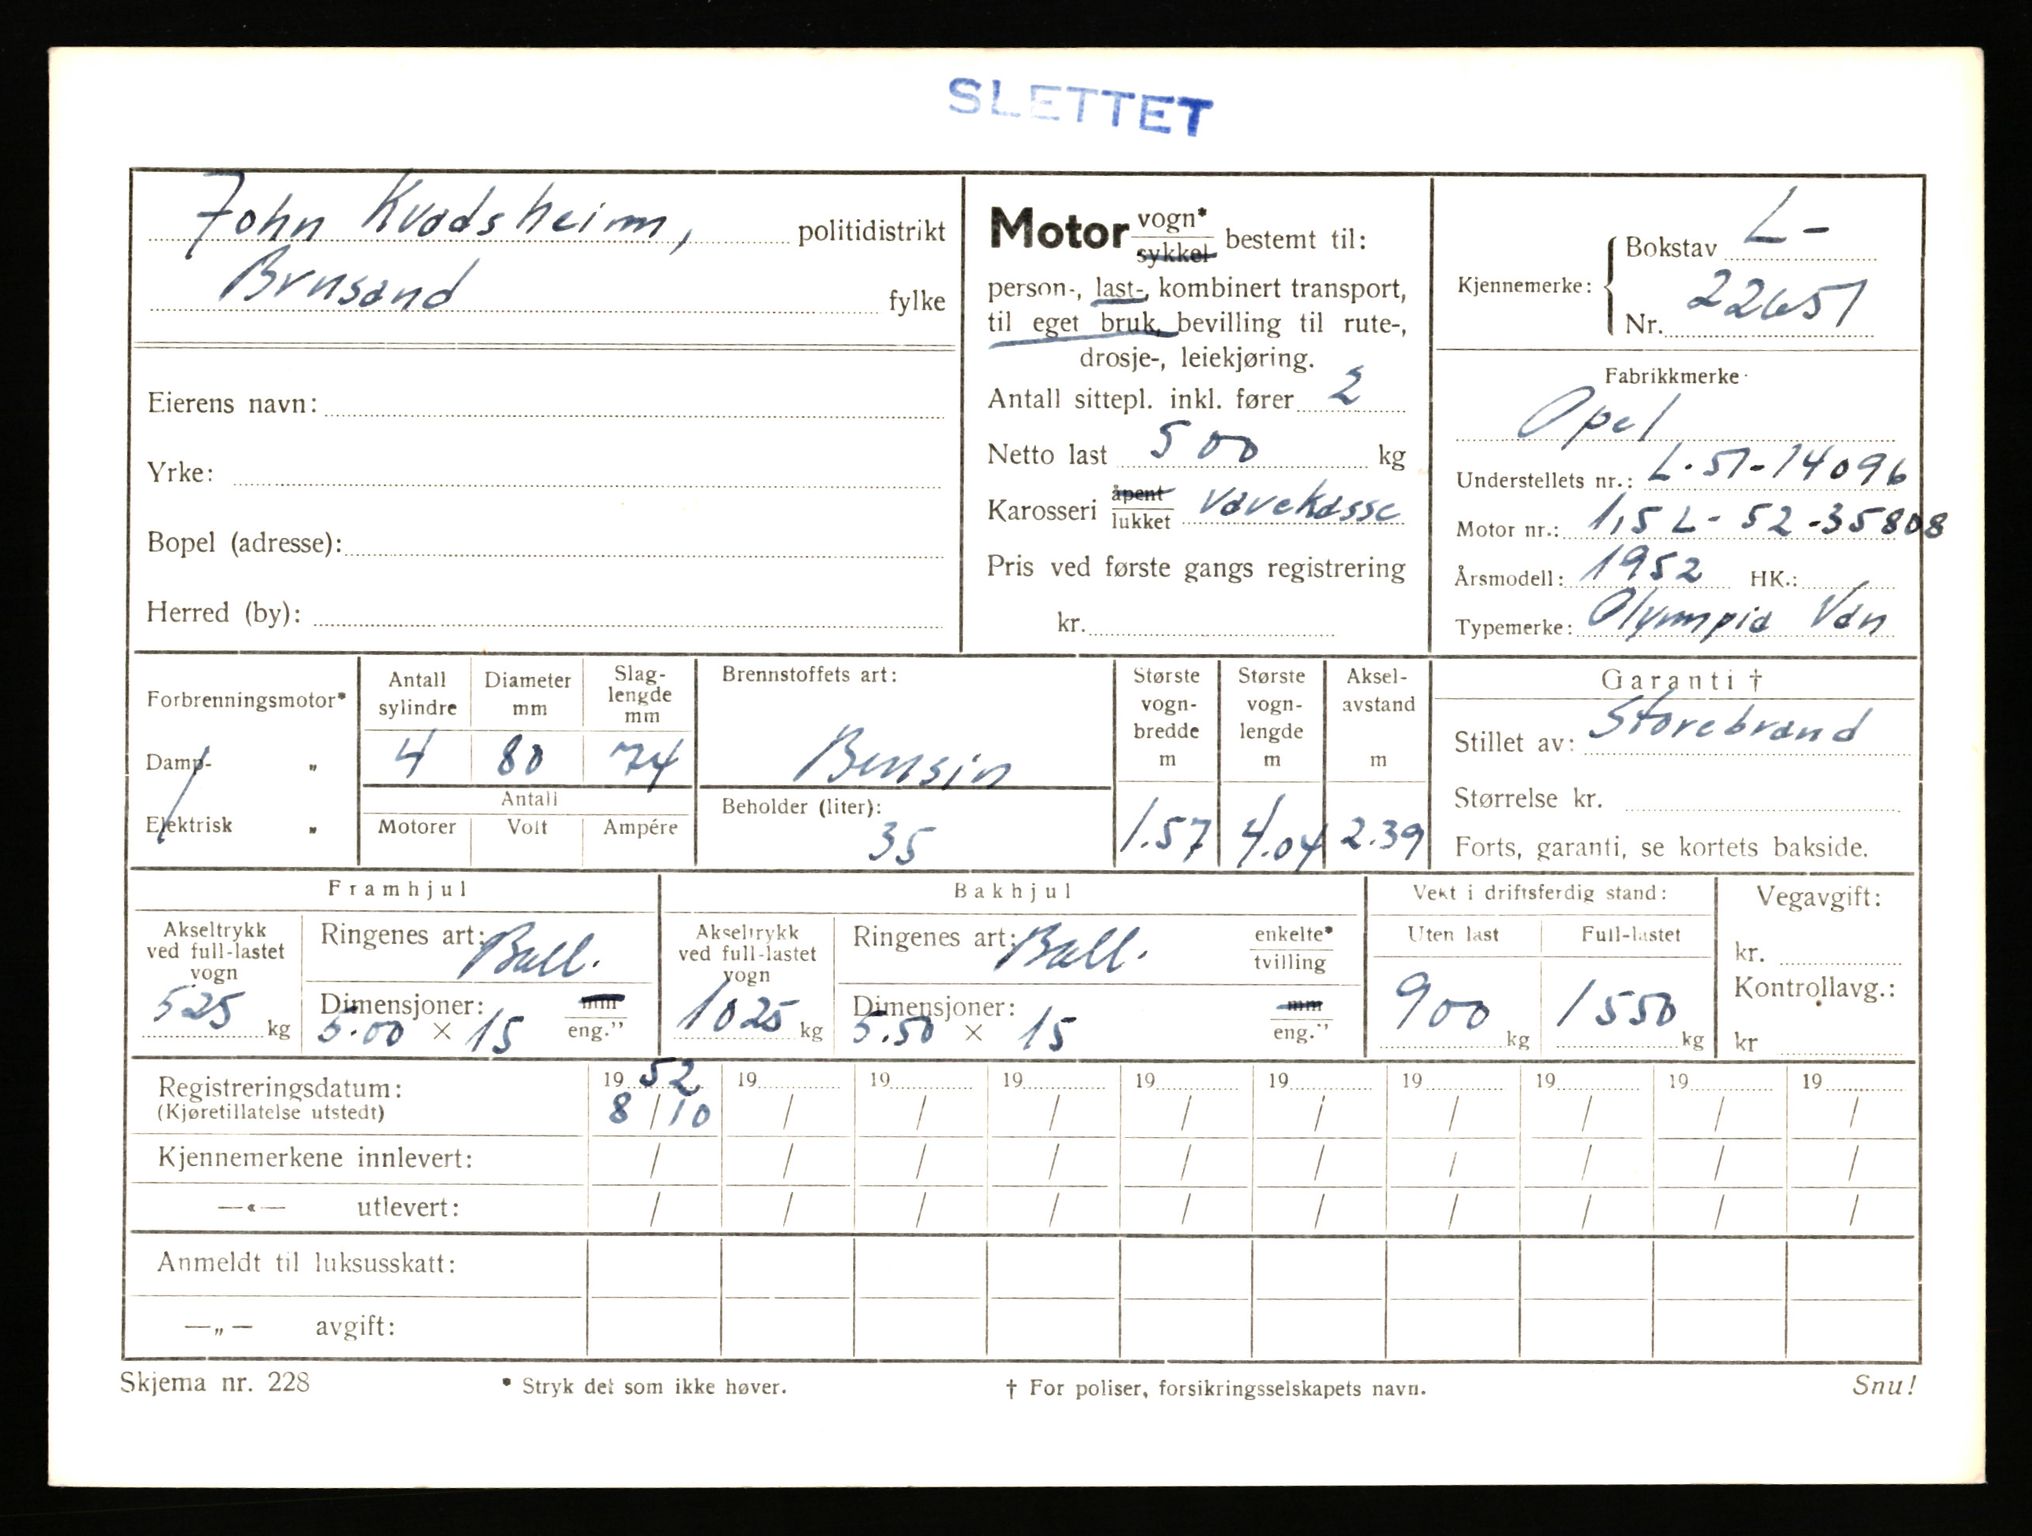 SLETTET
John Kvadsheim, politidistrikt
Brusand fylke
Eierens navn:
Yrke:
Bopel (adresse):
Herred (by):
Motor vogn* sykkel bestemt til:
person-, last-, kombinert transport,
til eget bruk, bevilling til rute-,
drosje-, leiekjøring.
Antall sittepl. inkl. fører 2
Netto last 500 kg
Karosseri åpent lukket varekasse
Pris ved første gangs registrering
kr.
Kjennemerke: Bokstav L-
Nr. 22651
Fabrikkmerke
Opel
Understellets nr.: L-51-14096
Motor nr.: 1,5 L - 52 - 35808
Årsmodell: 1952 HK.:
Typemerke: Olympia Van
Forbrenningsmotor*
Damp- „
Elektrisk „
Antall sylindre 4
Diameter mm 80
Slag-lengde mm 74
Antall
Motorer Volt Ampére
Brennstoffets art:
Bensin
Beholder (liter):
35
Største vogn-bredde m 1.57
Største vogn-lengde m 4.04
Aksel-avstand m 2.39
Garanti †
Stillet av: Storebrand
Størrelse kr.
Forts, garanti, se kortets bakside.
Framhjul
Akseltrykk ved full-lastet vogn 525 kg
Ringenes art: Ball.
Dimensjoner: mm
5.00 × 15 eng.”
Bakhjul
Akseltrykk ved full-lastet vogn 1025 kg
Ringenes art: Ball. enkelte* tvilling
Dimensjoner: mm
5.50 × 15 eng.”
Vekt i driftsferdig stand:
Uten last Full-lastet
900 kg 1550 kg
Vegavgift:
kr.
Kontrollavg.:
kr
Registreringsdatum: 19 52 19 19 19 19 19 19 19 19 19
(Kjøretillatelse utstedt) 8 / 10 / / / / / / / / /
Kjennemerkene innlevert: / / / / / / / / / /
—«— utlevert: / / / / / / / / / /
Anmeldt til luksusskatt:
—„— avgift:
Skjema nr. 228 * Stryk det som ikke høver. † For poliser, forsikringsselskapets navn. Snu!